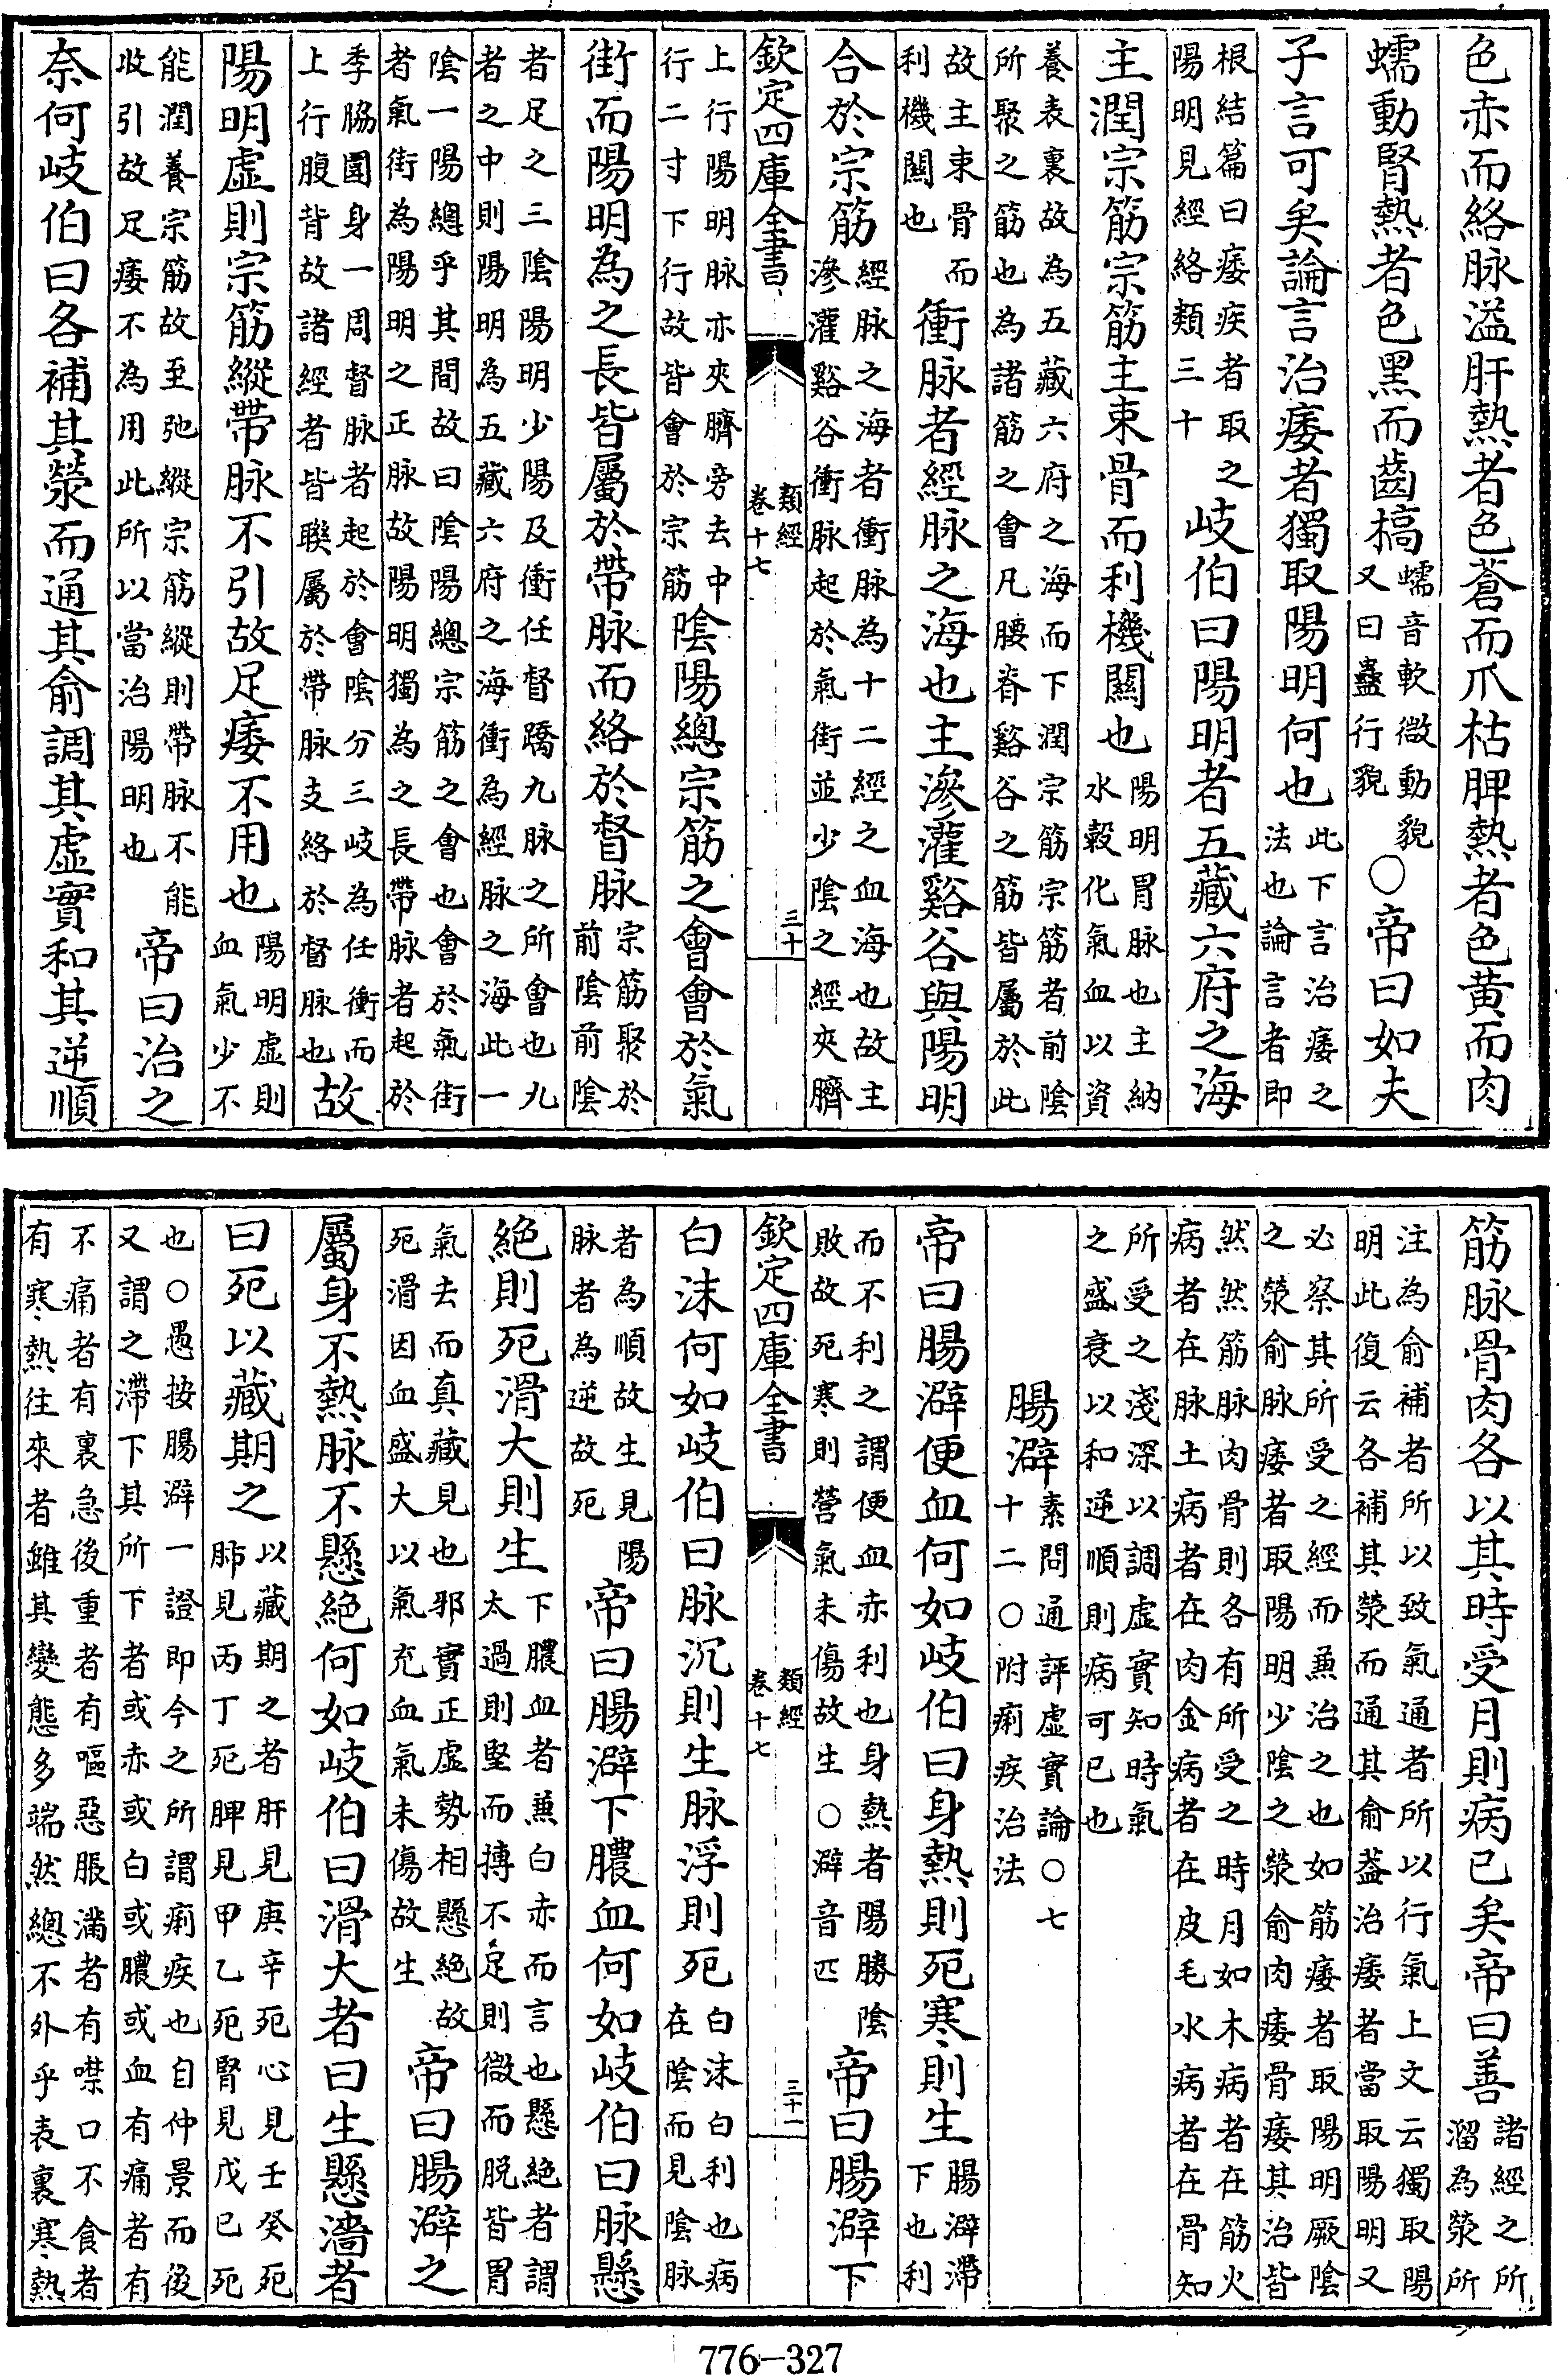 色赤而絡脉溢肝熱者色蒼而爪枯脾熱者色黄而肉
蠕動腎熱者色黑而齒槁蠕音軟微動貌又曰蟲行貌○帝曰如夫
子言可矣論言治痿者獨取陽明何也此下言治痿之法也論言者即
根結篇曰痿疾者取之陽明見經絡類三十岐伯曰陽明者五藏六府之海
主潤宗筋宗筋主束骨而利機關也陽明胃脉也主納水穀化氣血以資
養表裏故為五藏六府之海而下潤宗筋宗筋者前陰所聚之筋也為諸筋之會凡腰脊谿谷之筋皆屬於此
故主束骨而利機關也衝脉者經脉之海也主滲灌谿谷與陽明
合於宗筋經脉之海者衝脉為十二經之血海也故主滲灌谿谷衝脉起於氣街並少陰之經夾臍
欽定四庫全書 類經卷十七 三十
上行陽明脉亦夾臍旁去中行二寸下行故皆會於宗筋陰陽總宗筋之會會於氣
街而陽明為之長皆屬於帶脉而絡於督脉宗筋聚於前陰前陰
者足之三陰陽明少陽及衝任督蹻九脉之所會也九者之中則陽明為五藏六府之海衝為經脉之海此一
陰一陽總乎其間故曰陰陽總宗筋之會也會於氣街者氣街為陽明之正脉故陽明獨為之長帶脉者起於
季脇圍身一周督脉者起於會陰分三岐為任衝而上行腹背故諸經者皆聯屬於帶脉支絡於督脉也故
陽明虛則宗筋縱帶脉不引故足痿不用也陽明虛則血氣少不
能潤養宗筋故至弛縱宗筋縱則帶脉不能收引故足痿不為用此所以當治陽明也帝曰治之
奈何岐伯曰各補其滎而通其俞調其虛實和其逆順
筋脉骨肉各以其時受月則病已矣帝曰善諸經之所溜為滎所
注為俞補者所以致氣通者所以行氣上文云獨取陽明此復云各補其滎而通其俞蓋治痿者當取陽明又
必察其所受之經而兼治之也如筋痿者取陽明厥陰之滎俞脉痿者取陽明少陰之滎俞肉痿骨痿其治皆
然然筋脉肉骨則各有所受之時月如木病者在筋火病者在脉土病者在肉金病者在皮毛水病者在骨知
所受之淺深以調虛實知時氣之盛衰以和逆順則病可已也
腸澼素問通評虛實論○七十二○附痢疾治法
帝曰腸澼便血何如岐伯曰身熱則死寒則生腸澼滯下也利
而不利之謂便血赤利也身熱者陽勝陰敗故死寒則營氣未傷故生○澼音匹帝曰腸澼下
欽定四庫全書 類經卷十七 三十一
白沫何如岐伯曰脉沉則生脉浮則死白沫白利也病在陰而見陰脉
者為順故生見陽脉者為逆故死帝曰腸澼下膿血何如岐伯曰脉懸
絕則死滑大則生下膿血者兼白赤而言也懸絕者謂太過則堅而搏不足則微而脱皆胃
氣去而真藏見也邪實正虛勢相懸絕故死滑因血盛大以氣充血氣未傷故生帝曰腸澼之
屬身不熱脉不懸絕何如岐伯曰滑大者曰生懸濇者
曰死以藏期之以藏期之者肝見庚辛死心見壬癸死肺見丙丁死脾見甲乙死腎見戊己死
也○愚按腸澼一證即今之所謂痢疾也自仲景而後又謂之滯下其所下者或赤或白或膿或血有痛者有
不痛者有裏急後重者有嘔惡脹滿者有噤口不食者有寒熱往來者雖其變態多端然總不外乎表裏寒熱
776-327